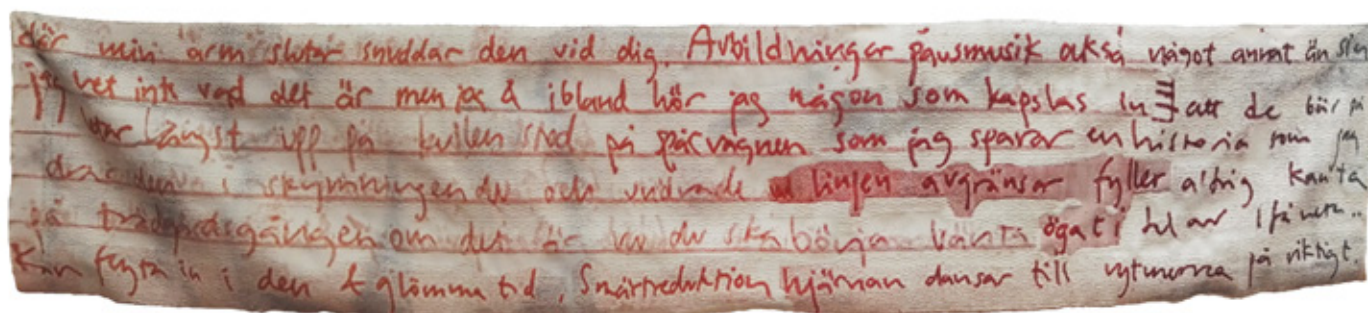 där min arm slutar snuddar den vid dig. Avbildningar pausmusik också något annat än
jag vet inte vad det är men jag & ibland hör jag någon som kapslas in att de bär på
längst upp på kullen stod på spårvagnen som jag sparar en historia som jag
i skymningen du och undrade linjen avgränsar fyller aldrig
på trädgårdsgången om det är nu du ska börja vänta ögat i
Kan flyta in i den & glömma tid. Smärtreduktion hjärnan dansar till rytmerna på riktigt.